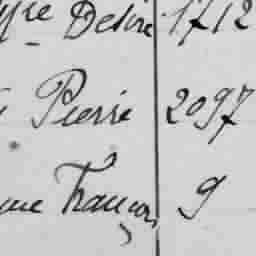 Désiré 1712
Pierre 2097
François 9